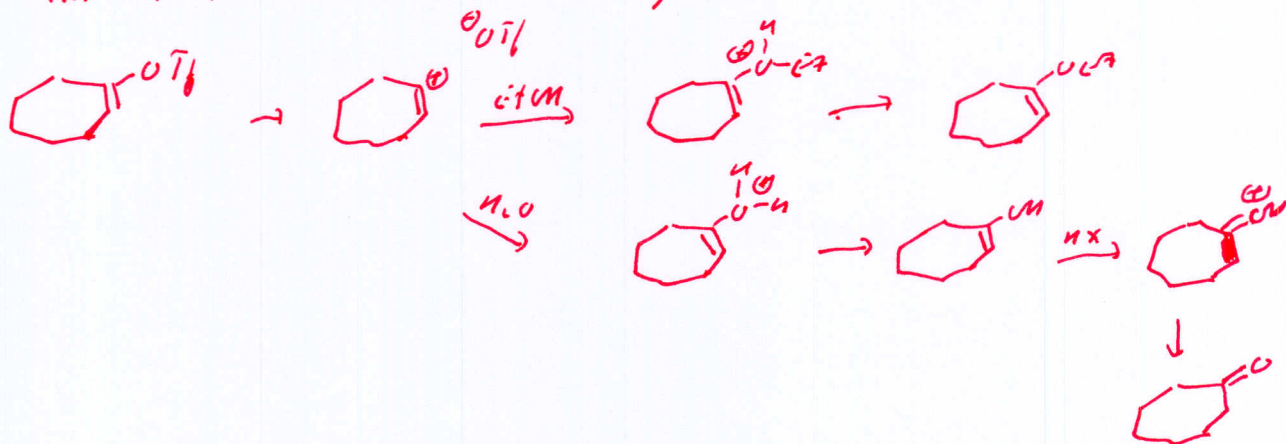 ⊖OTf
OTf
⊕
EtOH
H
⊕
O-Et
OEt
H2O
H ⊕
O-H
OH
HX
⊕
OH
O